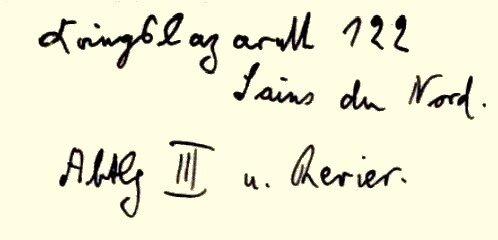 Kriegslazarett 122
Sains du Nord.
Abtlg III u. Revier.